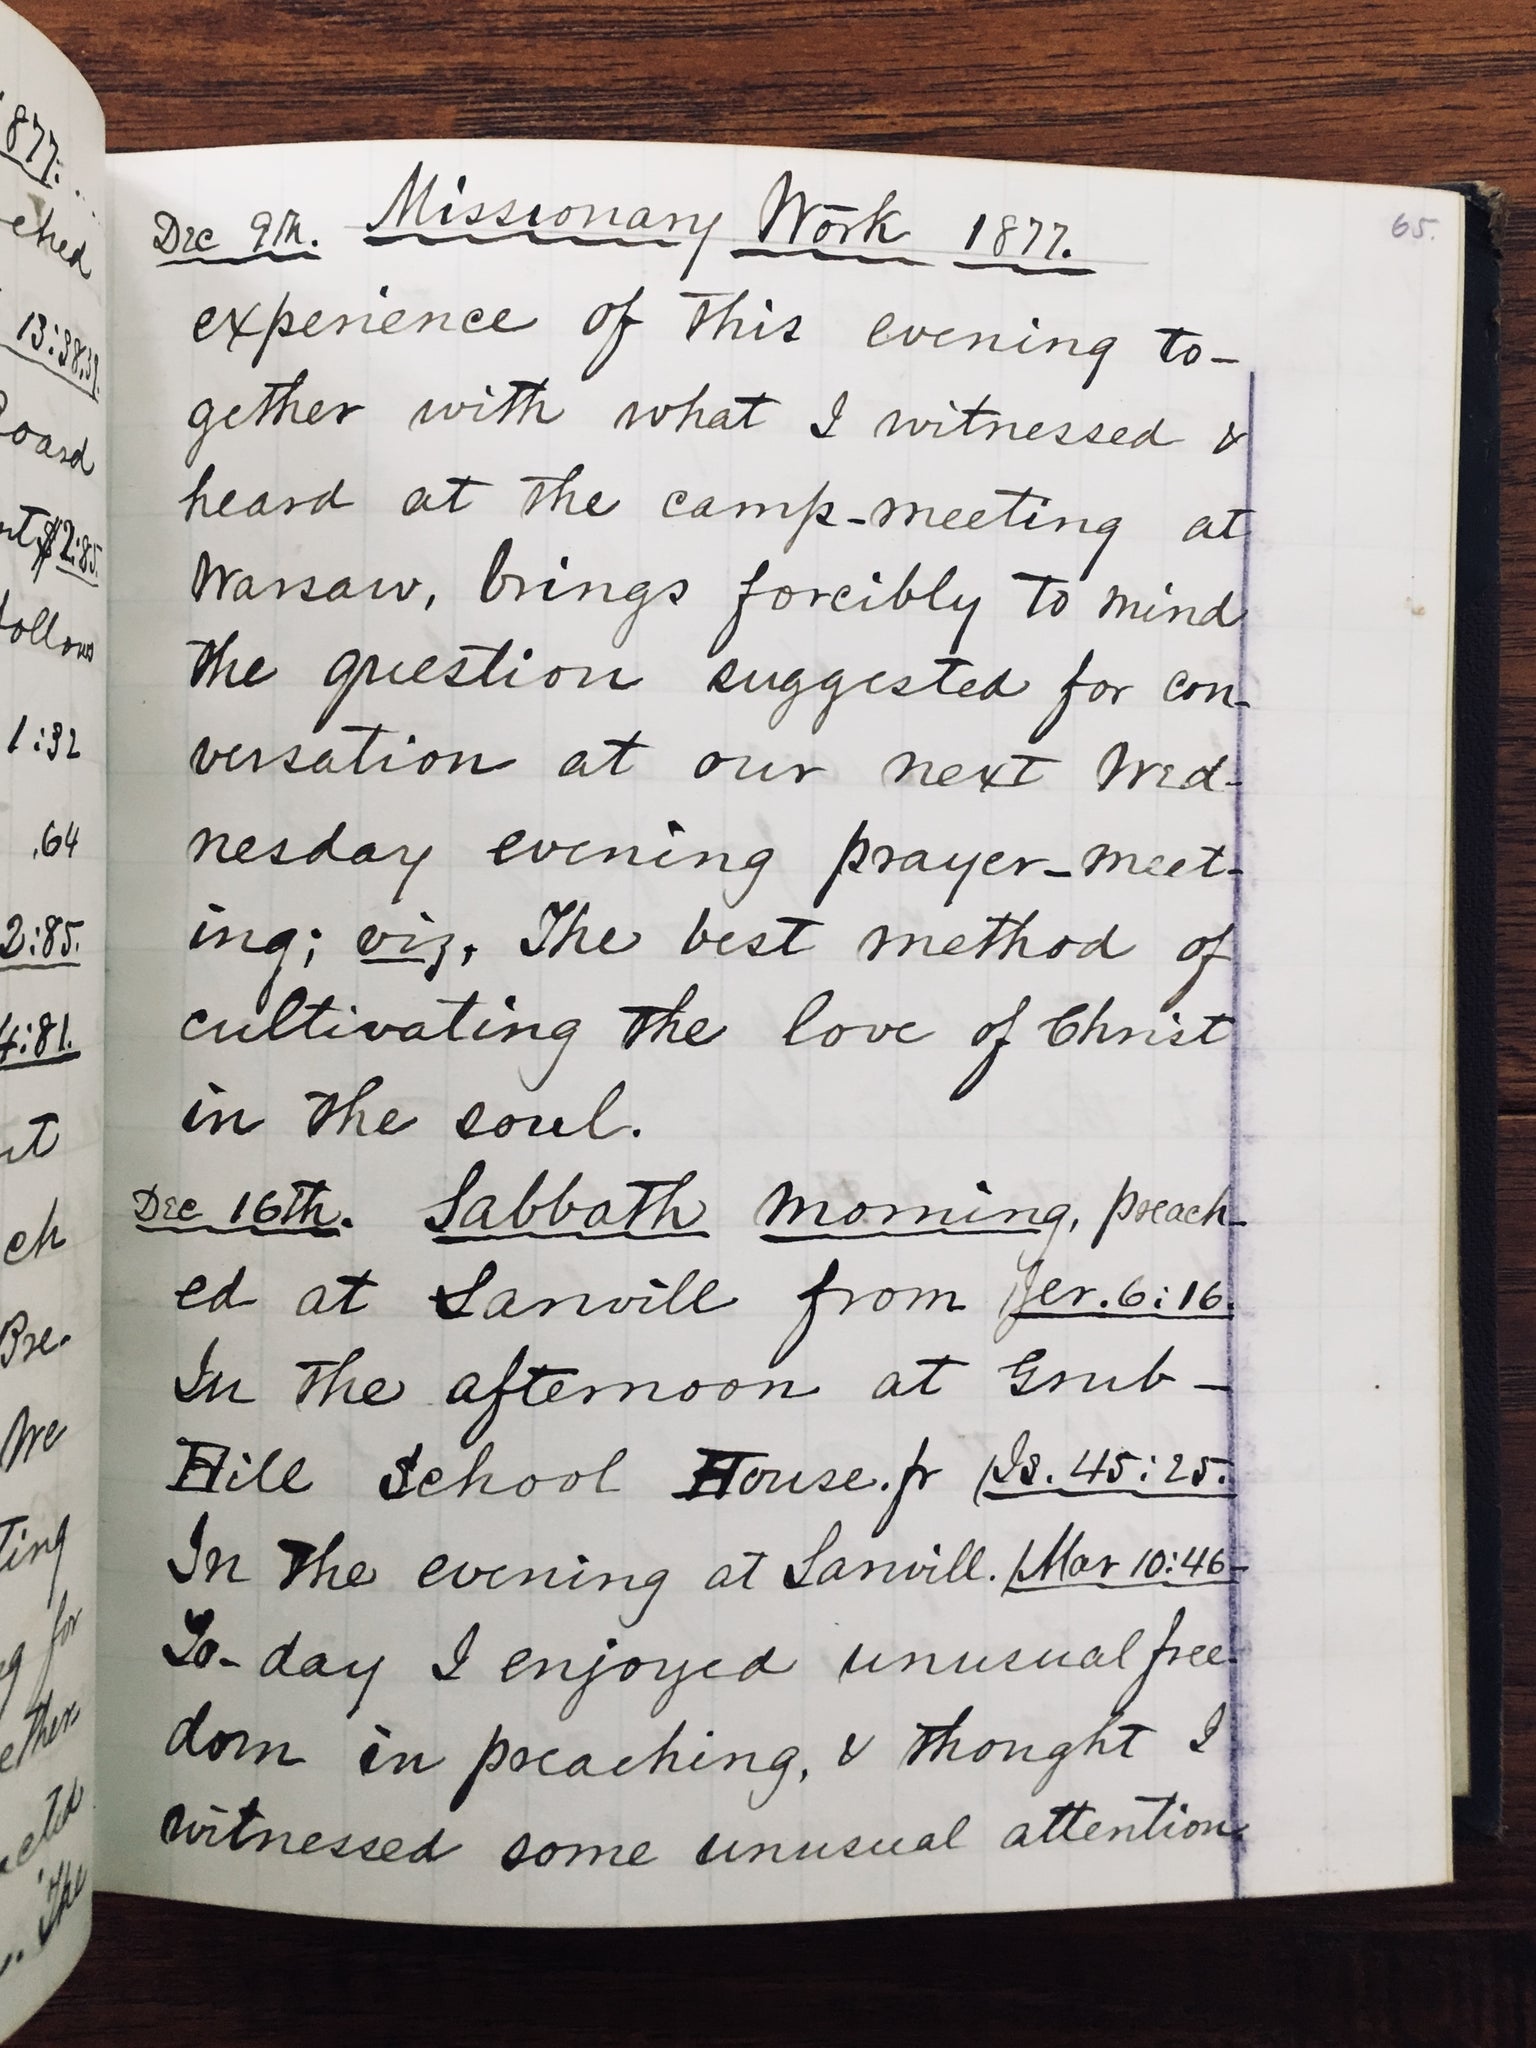 877.
ched
13:38.39.
Board
nt, $2:85.
follows
1:32
.64
2:85.
4:81.
ch
Pre-
We
ting
g for
ether
cted
the
Dec 9th. Missionary Work 1877.
65.
experience of this evening to-
gether with what I witnessed &
heard at the camp-meeting at
Warsaw, brings forcibly to mind
the question suggested for con-
versation at our next Wed-
nesday evening prayer-meet-
ing; viz, The best method of
cultivating the love of Christ
in the soul.
Dec 16th. Sabbath morning, preach-
ed at Lanvill from Jer. 6:16.
In the afternoon at Grub-
Hill School House. fr Is. 45:25.
In the evening at Lanvill. Mar 10:46-
To-day I enjoyed unusual free-
dom in preaching, & thought I
witnessed some unusual attention.